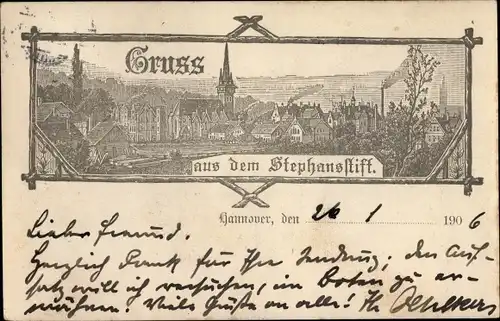 Gruss
aus dem Stephansstift.
Hannover, den 26 1 1906
Lieber Freund.
Herzlich Dank für Ihre Sendung; den Auf-
satz will ich versuchen, im Boten zu er-
wähnen! Viele Grüße an alle! Ihr Oehlkers